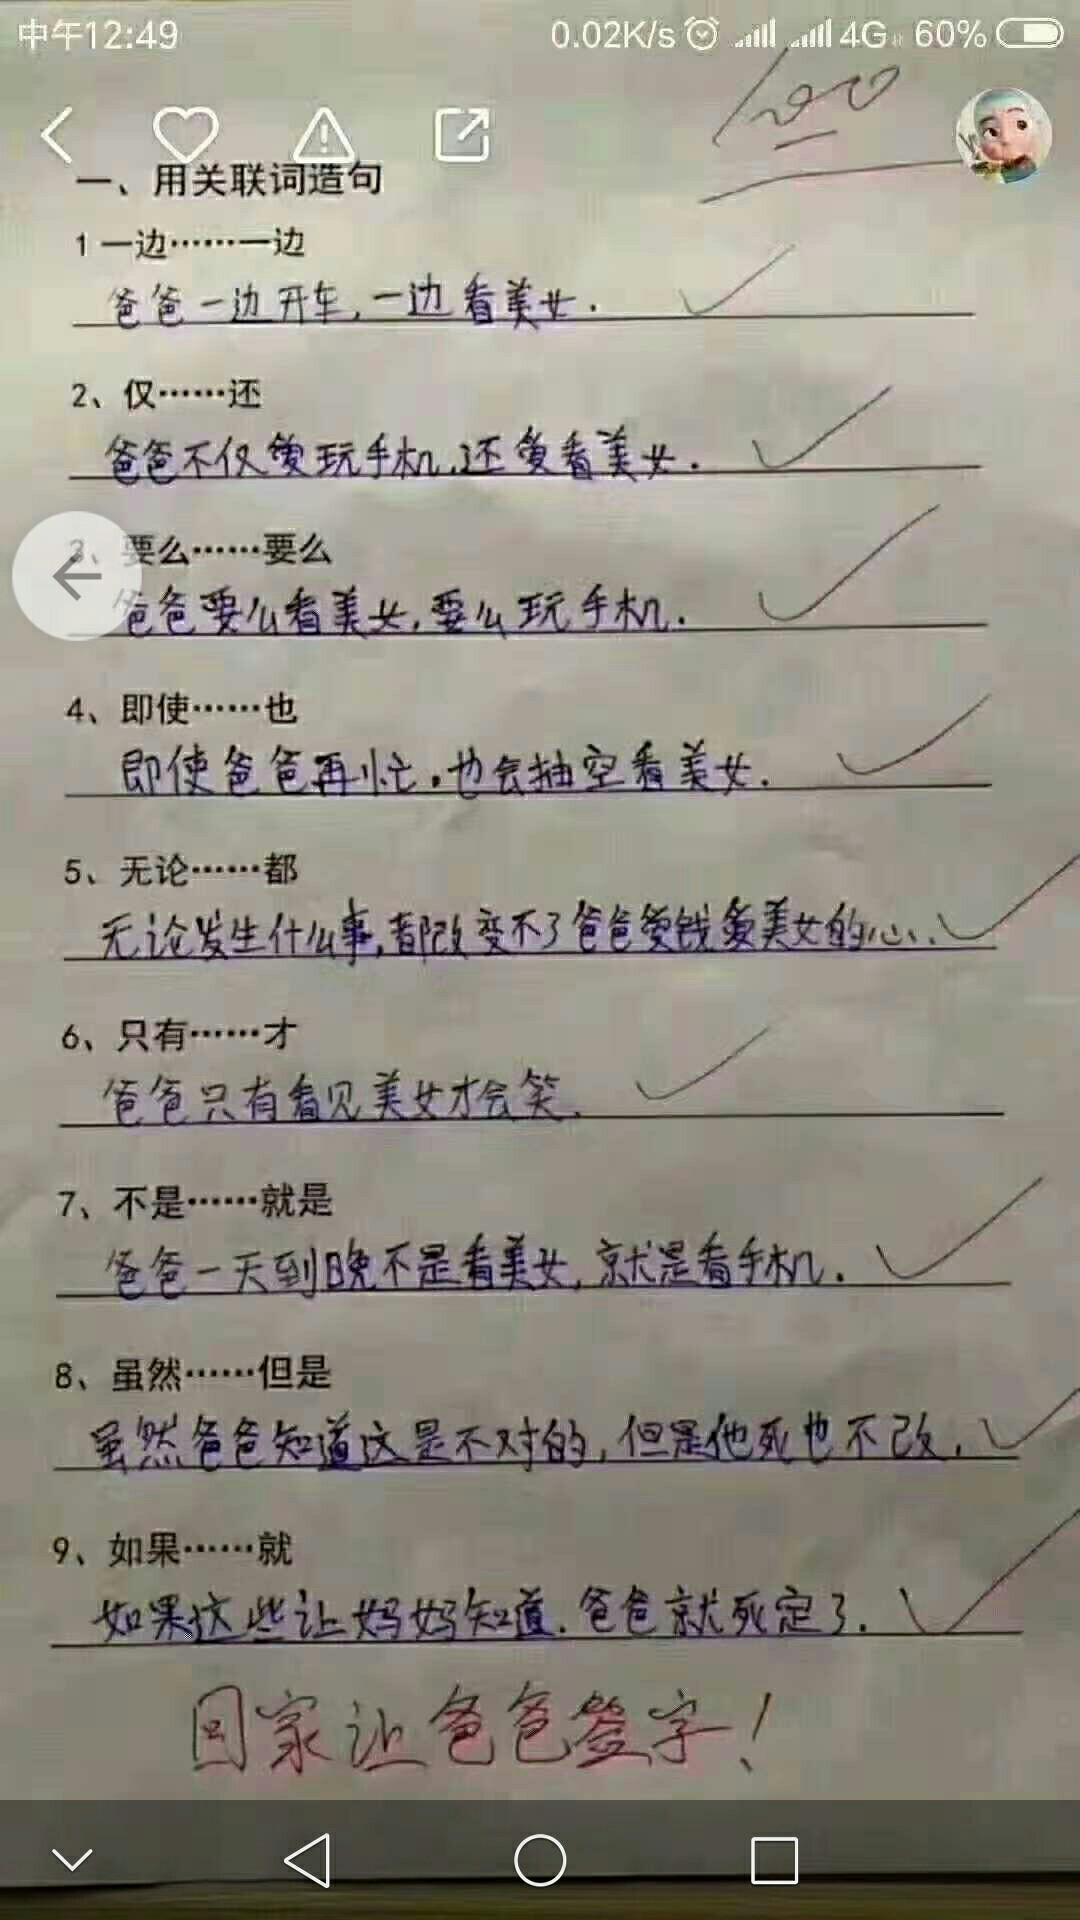 中午12:49 0.02K/s 4G 60%
100
一、用关联词造句
1 一边……一边
爸爸一边开车,一边看美女.
2、仅……还
爸爸不仅爱玩手机,还爱看美女.
3、要么……要么
爸爸要么看美女,要么玩手机.
4、即使……也
即使爸爸再忙,也会抽空看美女.
5、无论……都
无论发生什么事,都改变不了爸爸爱钱爱美女的心.
6、只有……才
爸爸只有看见美女才会笑.
7、不是……就是
爸爸一天到晚不是看美女,就是看手机.
8、虽然……但是
虽然爸爸知道这是不对的,但是他死也不改.
9、如果……就
如果这些让妈妈知道.爸爸就死定了.
回家让爸爸签字!